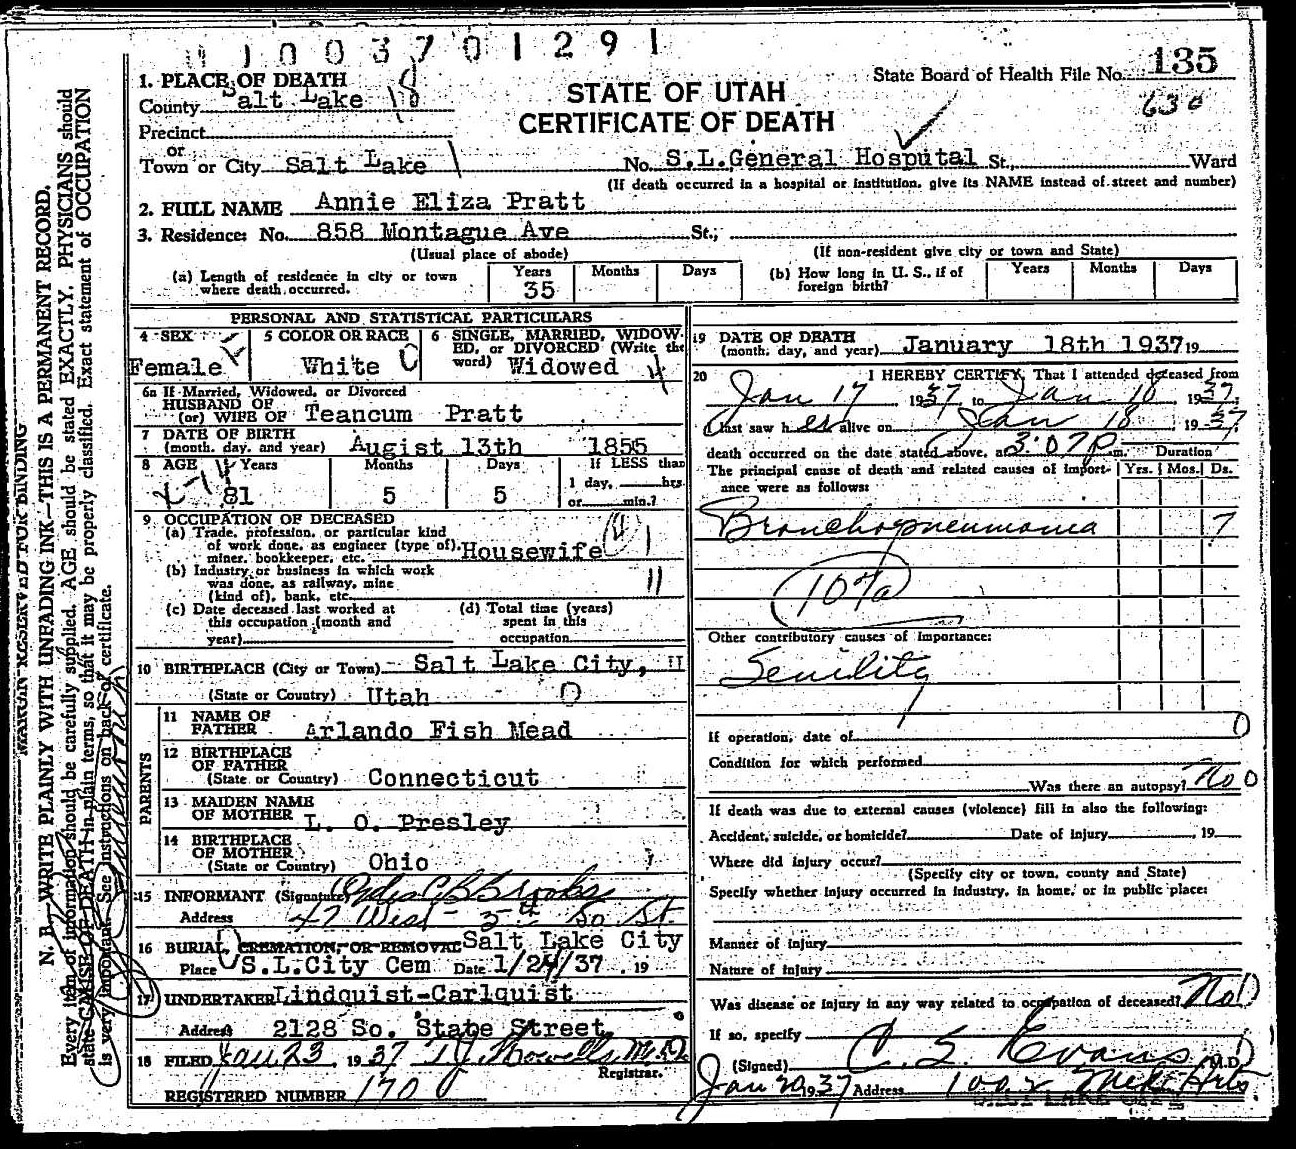 1003701291
1. PLACE OF DEATH
State Board of Health File No. 135
County Salt Lake 18
STATE OF UTAH
630
CERTIFICATE OF DEATH
Precinct
or
Town or City Salt Lake No. S.L.General Hosputal St., Ward
(If death occurred in a hospital or institution, give its NAME instead of street and number)
2. FULL NAME Annie Eliza Pratt
3. Residence: No. 858 Montague Ave St.;
(Usual place of abode) (If non-resident give city or town and State)
(a) Length of residence in city or town where death occurred. Years 35 Months Days
(b) How long in U. S., if of foreign birth? Years Months Days
PERSONAL AND STATISTICAL PARTICULARS
4 SEX Female
5 COLOR OR RACE White
6 SINGLE, MARRIED, WIDOWED, or DIVORCED (Write the word) Widowed
6a If Married, Widowed, or Divorced
HUSBAND OF
(or) WIFE OF Teancum Pratt
7 DATE OF BIRTH
(month, day, and year) Augist 13th 1855
8 AGE Years 81 Months 5 Days 5 If LESS than 1 day, hrs. or min.?
9 OCCUPATION OF DECEASED
(a) Trade, profession, or particular kind of work done, as engineer (type of), miner, bookkeeper, etc. Housewife
(b) Industry or business in which work was done, as railway, mine (kind of), bank, etc.
(c) Date deceased last worked at this occupation (month and year)
(d) Total time (years) spent in this occupation
10 BIRTHPLACE (City or Town) Salt Lake City,
(State or Country) Utah
PARENTS
11 NAME OF FATHER Arlando Fish Mead
12 BIRTHPLACE OF FATHER
(State or Country) Connecticut
13 MAIDEN NAME OF MOTHER L. O. Presley
14 BIRTHPLACE OF MOTHER
(State or Country) Ohio
15 INFORMANT (Signature) Brooks
Address 47 West 5th So St.
16 BURIAL, CREMATION, OR REMOVAL Salt Lake City
Place S.L.City Cem Date 1/24/37, 19
17 UNDERTAKER Lindquist-Carlquist
Address 2128 So. State Street
18 FILED Jan 23 1937 T J Howells M.D.
Registrar.
REGISTERED NUMBER 170
19 DATE OF DEATH
(month, day, and year) January 18th 1937 19
20 I HEREBY CERTIFY, That I attended deceased from
Jan 17 1937 to Jan 18, 1937;
I last saw her alive on Jan 18 1937
death occurred on the date stated above, at 3:07 p m. Duration
The principal cause of death and related causes of importance were as follows: Yrs. Mos. Ds.
Bronchopneumonia 7
107a
Other contributory causes of importance:
Senility
If operation, date of 0
Condition for which performed
Was there an autopsy? No 0
If death was due to external causes (violence) fill in also the following:
Accident, suicide, or homicide? Date of injury , 19
Where did injury occur?
(Specify city or town, county and State)
Specify whether injury occurred in industry, in home, or in public place:
Manner of injury
Nature of injury
Was disease or injury in any way related to occupation of deceased? No
If so, specify
(Signed) C. S. Evans M.D.
Jan 20 1937 Address 1002 Med Arts
SALT LAKE CITY
MARGIN RESERVED FOR BINDING
N. B.—WRITE PLAINLY WITH UNFADING INK—THIS IS A PERMANENT RECORD.
Every item of information should be carefully supplied. AGE should be stated EXACTLY. PHYSICIANS should
state CAUSE OF DEATH in plain terms, so that it may be properly classified. Exact statement of OCCUPATION
is very important. See instructions on back of certificate.